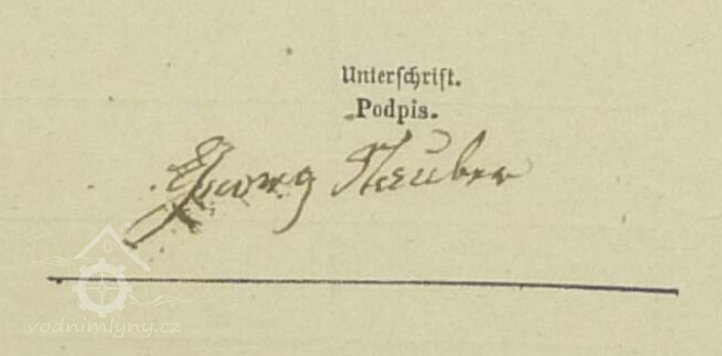 Unterſchrift.
Podpis.
Georg Neuber
vodnimlyny.cz